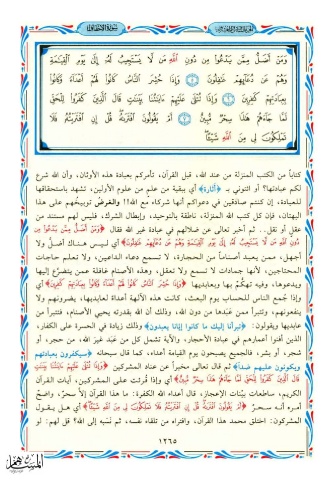 سورة الأحقاف
وَمَنْ أَضَلُّ مِمَّن يَدْعُوا۟ مِن دُونِ ٱللَّهِ مَن لَّا يَسْتَجِيبُ لَهُۥٓ إِلَىٰ يَوْمِ ٱلْقِيَـٰمَةِ
وَهُمْ عَن دُعَآئِهِمْ غَـٰفِلُونَ ٥ وَإِذَا حُشِرَ ٱلنَّاسُ كَانُوا۟ لَهُمْ أَعْدَآءً وَكَانُوا۟
بِعِبَادَتِهِمْ كَـٰفِرِينَ ٦ وَإِذَا تُتْلَىٰ عَلَيْهِمْ ءَايَـٰتُنَا بَيِّنَـٰتٍ قَالَ ٱلَّذِينَ كَفَرُوا۟ لِلْحَقِّ
لَمَّا جَآءَهُمْ هَـٰذَا سِحْرٌ مُّبِينٌ ٧ أَمْ يَقُولُونَ ٱفْتَرَىٰهُ قُلْ إِنِ ٱفْتَرَيْتُهُۥ فَلَا
تَمْلِكُونَ لِى مِنَ ٱللَّهِ شَيْـًٔا
كتاباً من الكتب المنزلة من عند الله، قبل القرآن، تأمركم بعبادة هذه الأوثان، وأن الله شرع
لكم عبادتها؟ أو ائتوني بـ ﴿أثارة﴾ أي بقية من علم من علوم الأولين، تشهد باستحقاقها
للعبادة، إن كنتم صادقين في دعواكم أنها شركاء مع الله!! والغرض توبيخهم على هذا
البهتان، فإن كل كتب الله المنزلة، ناطقة بالتوحيد، وإبطال الشرك، فليس لهم مستند من
عقل أو نقل.. ثم أخبر تعالى عن ضلالهم في عبادة غير الله فقال ﴿وَمَنْ أَضَلُّ مِمَّن يَدْعُوا۟ مِن
دُونِ ٱللَّهِ مَن لَّا يَسْتَجِيبُ لَهُۥٓ إِلَىٰ يَوْمِ ٱلْقِيَـٰمَةِ وَهُمْ عَن دُعَآئِهِمْ غَـٰفِلُونَ﴾ أي ليس هناك أضل ولا
أجهل، ممن يعبد أصناماً من الحجارة، لا تسمع دعاء الداعين، ولا تعلم حاجات
المحتاجين، لأنها جمادات لا تسمع ولا تعقل، وهذه الأصنام غافلة عمن يتضرع إليها
ويدعوها، وفيه تهكم بها وبعابديها ﴿وَإِذَا حُشِرَ ٱلنَّاسُ كَانُوا۟ لَهُمْ أَعْدَآءً وَكَانُوا۟ بِعِبَادَتِهِمْ كَـٰفِرِينَ﴾ أي
وإذا جُمع الناس للحساب يوم البعث، كانت هذه الآلهة أعداءً لعابديها، يضرونهم ولا
ينفعونهم، وتتبرأ ممن عبدها من دون الله، وذلك أن الله بقدرته يحيي الأصنام، فتتبرأ من
عابديها ويقولون: ﴿تبرأنا إليك ما كانوا إيانا يعبدون﴾ وذلك زيادة في الحسرة على الكفار،
الذين أفنوا أعمارهم في عبادة الأحجار، والآية تشمل كل من عُبد غير الله، من حجر، أو
شجر، أو بشر، فالجميع يصبحون يوم القيامة أعداء، كما قال سبحانه ﴿سيكفرون بعبادتهم
ويكونون عليهم ضداً﴾ ثم قال تعالى مخبراً عن عناد المشركين ﴿وَإِذَا تُتْلَىٰ عَلَيْهِمْ ءَايَـٰتُنَا بَيِّنَـٰتٍ
قَالَ ٱلَّذِينَ كَفَرُوا۟ لِلْحَقِّ لَمَّا جَآءَهُمْ هَـٰذَا سِحْرٌ مُّبِينٌ﴾ أي وإذا قُرئت على المشركين، آيات القرآن
الكريم، ساطعات بينات الإعجاز، قال أعداء الله الكفرة: ما هذا القرآن إلا سحرٌ، واضحٌ
أمره أنه سحرٌ ﴿أَمْ يَقُولُونَ ٱفْتَرَىٰهُ قُلْ إِنِ ٱفْتَرَيْتُهُۥ فَلَا تَمْلِكُونَ لِى مِنَ ٱللَّهِ شَيْـًٔا﴾ أي هل يقول
المشركون: اختلق محمد هذا القرآن، وافتراه من تلقاء نفسه، ثم نسبه إلى الله؟ قل لهم: لو
١٢٦٥